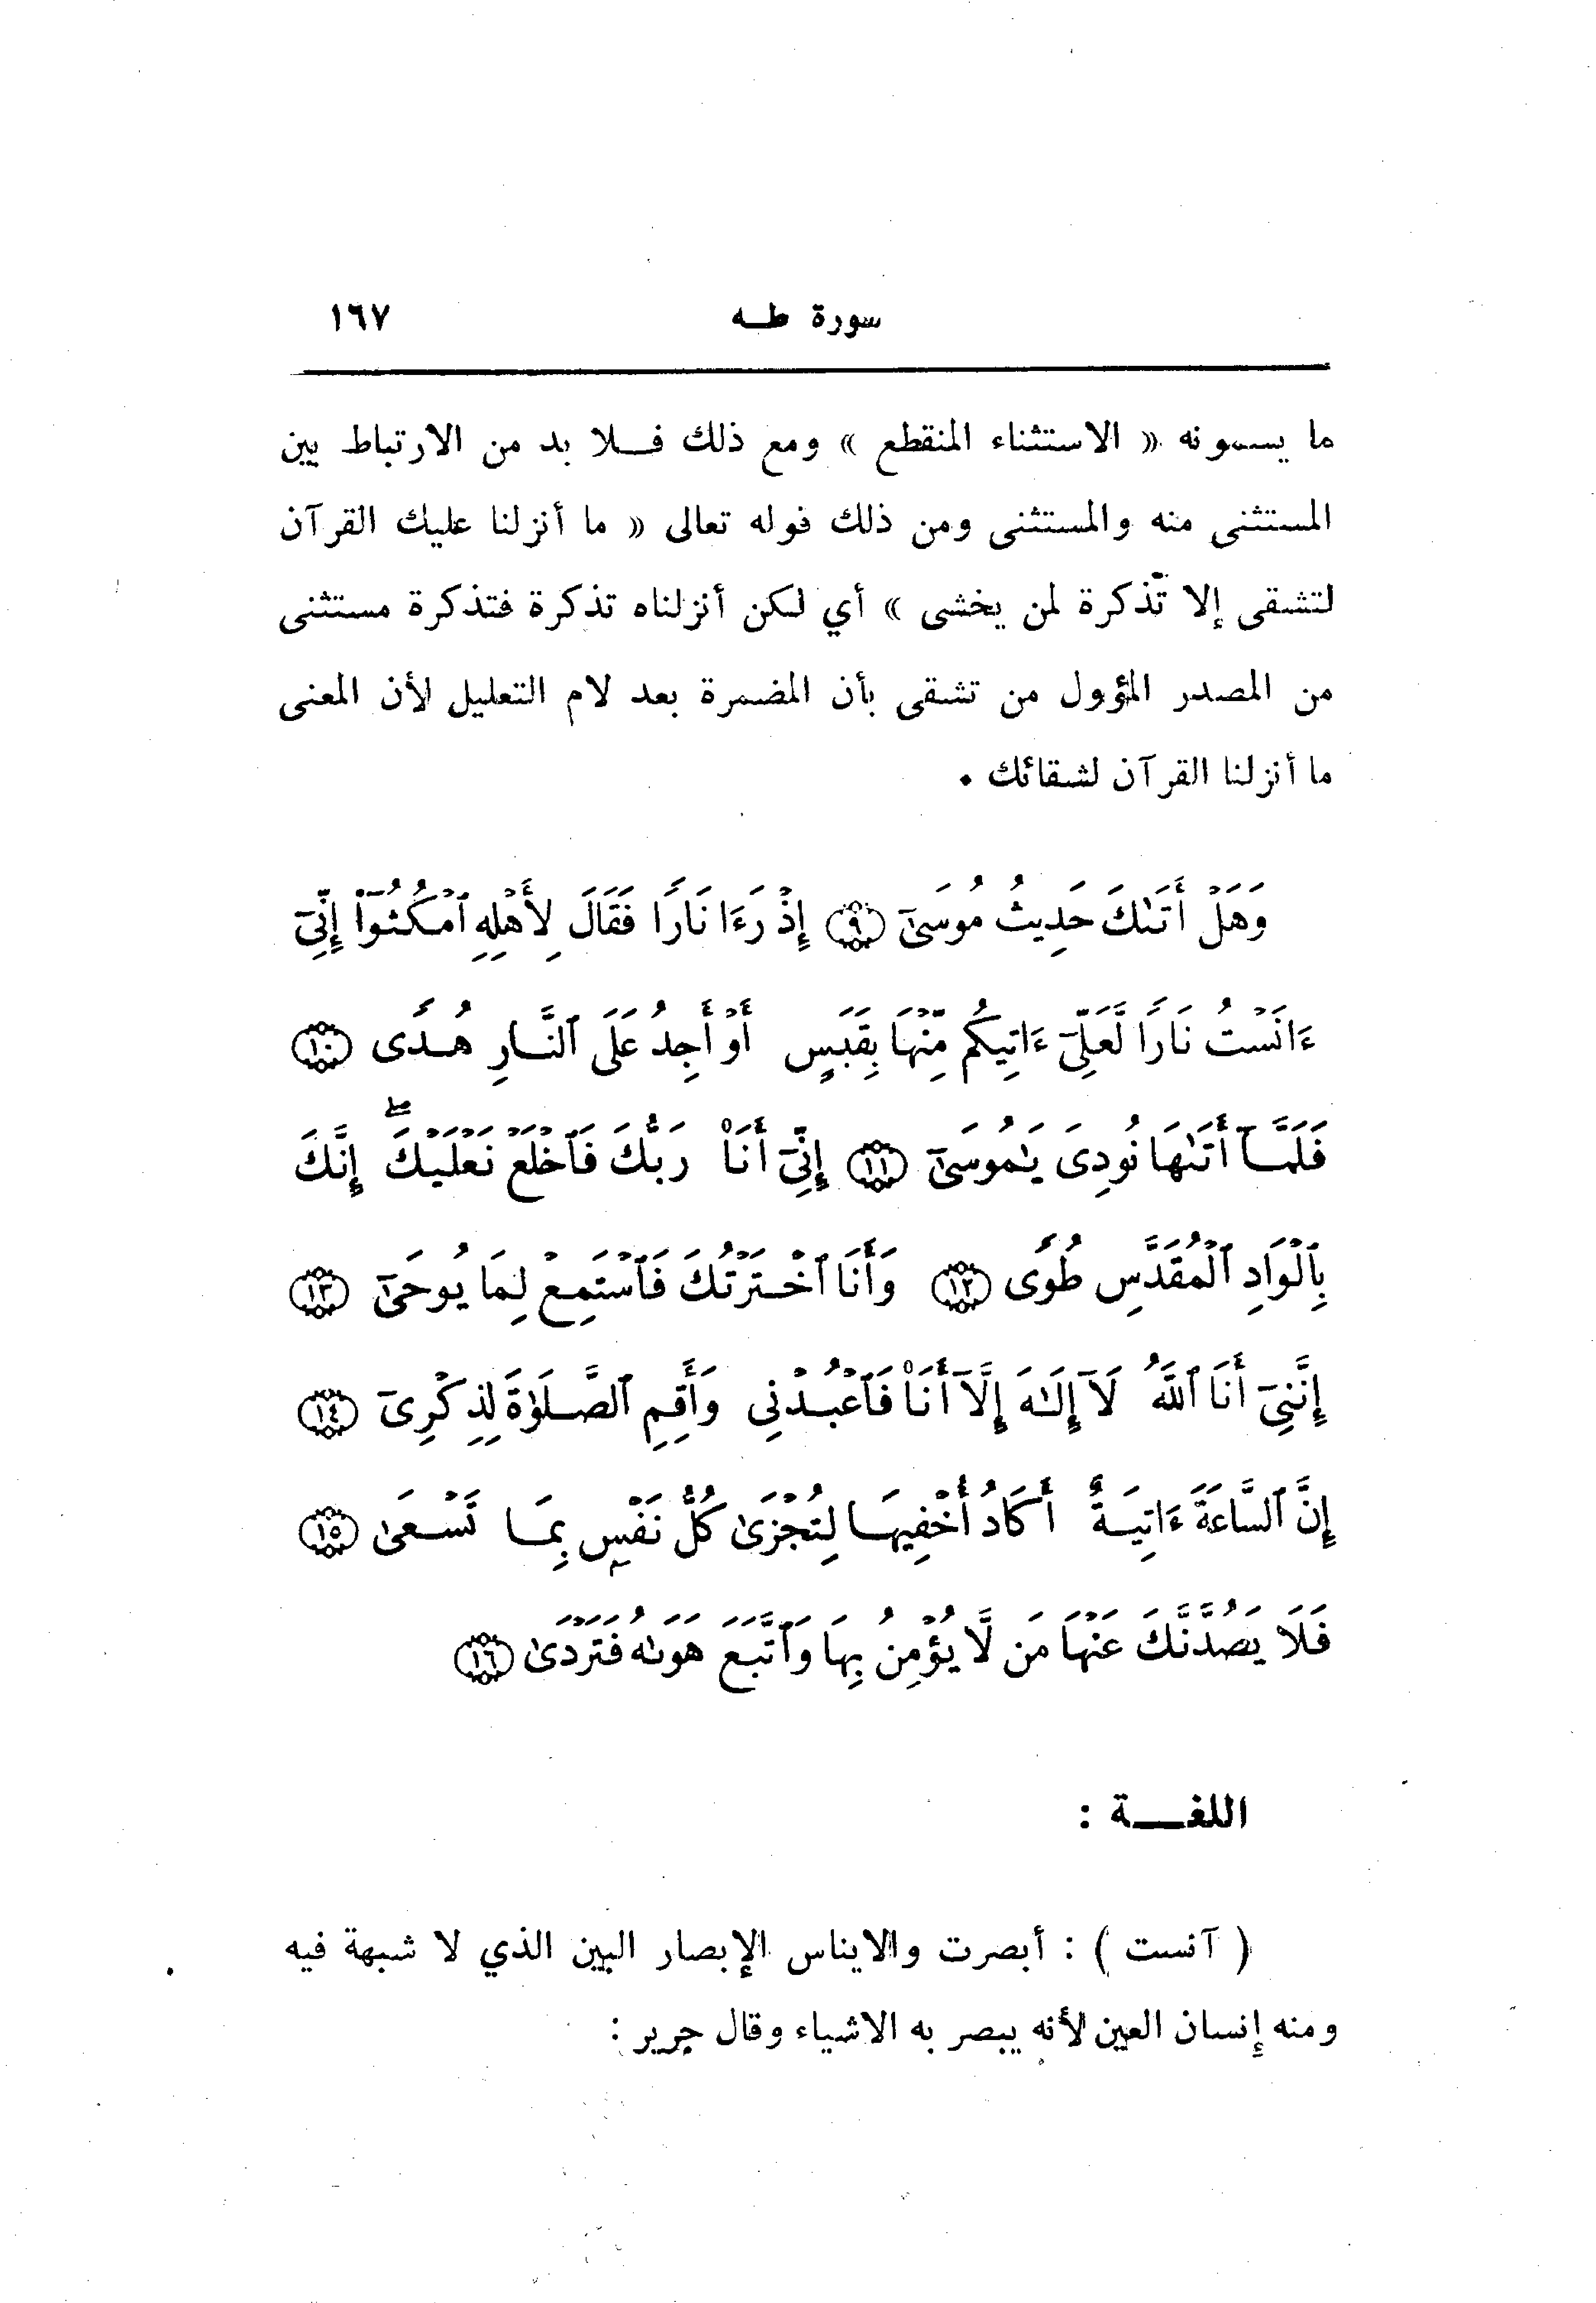 سورة طــه ١٦٧
ما يسمونه « الاستثناء المنقطع » ومع ذلك فــلا بد من الارتباط بين
المستثنى منه والمستثنى ومن ذلك قوله تعالى « ما أنزلنا عليك القرآن
لتشقى إلا تّذكرة لمن يخشى » أي لكن أنزلناه تذكرة فتذكرة مستثنى
من المصدر المؤول من تشقى بأن المضمرة بعد لام التعليل لأن المعنى
ما أنزلنا القرآن لشقائك .
وَهَلْ أَتَىٰكَ حَدِيثُ مُوسَىٰٓ ٩ إِذْ رَءَا نَارًا فَقَالَ لِأَهْلِهِ ٱمْكُثُوٓا۟ إِنِّىٓ
ءَانَسْتُ نَارًا لَّعَلِّىٓ ءَاتِيكُم مِّنْهَا بِقَبَسٍ أَوْ أَجِدُ عَلَى ٱلنَّارِ هُدًى ١٠
فَلَمَّآ أَتَىٰهَا نُودِىَ يَٰمُوسَىٰٓ ١١ إِنِّىٓ أَنَا۠ رَبُّكَ فَٱخْلَعْ نَعْلَيْكَ ۖ إِنَّكَ
بِٱلْوَادِ ٱلْمُقَدَّسِ طُوًى ١٢ وَأَنَا ٱخْتَرْتُكَ فَٱسْتَمِعْ لِمَا يُوحَىٰٓ ١٣
إِنَّنِىٓ أَنَا ٱللَّهُ لَآ إِلَٰهَ إِلَّآ أَنَا۠ فَٱعْبُدْنِى وَأَقِمِ ٱلصَّلَوٰةَ لِذِكْرِىٓ ١٤
إِنَّ ٱلسَّاعَةَ ءَاتِيَةٌ أَكَادُ أُخْفِيهَا لِتُجْزَىٰ كُلُّ نَفْسٍۭ بِمَا تَسْعَىٰ ١٥
فَلَا يَصُدَّنَّكَ عَنْهَا مَن لَّا يُؤْمِنُ بِهَا وَٱتَّبَعَ هَوَىٰهُ فَتَرْدَىٰ ١٦
اللغـــة :
( آنست ) : أبصرت والايناس الإبصار البين الذي لا شبهة فيه
ومنه إنسان العين لأنه يبصر به الاشياء وقال جرير :